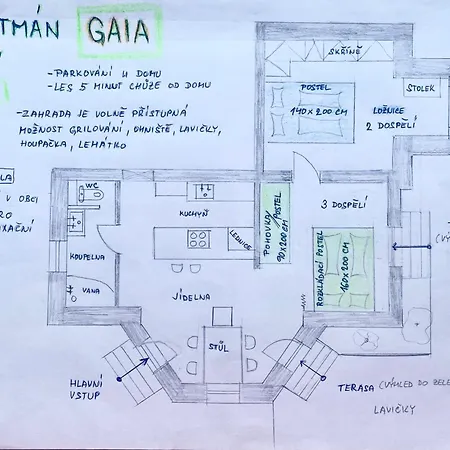 TMÁN GAIA
-PARKOVÁNÍ U DOMU
-LES 5 MINUT CHŮZE OD DOMU
-ZAHRADA JE VOLNĚ PŘÍSTUPNÁ
MOŽNOST GRILOVÁNÍ, OHNIŠTĚ, LAVIČKY,
HOUPAČKA, LEHÁTKO
SKŘÍNĚ
POSTEL
140 x 200 CM
STOLEK
LOŽNICE
2 DOSPĚLÍ
LA
V OBCI
RO
XAČNÍ
WC
KOUPELNA
VANA
KUCHYŇ
LEDNICE
JÍDELNA
STŮL
POHOVKA
POSTEL
90 x 200 CM
3 DOSPĚLÍ
ROZKLÁDACÍ POSTEL
160 x 200 CM
(VÝ
HLAVNÍ
VSTUP
TERASA (VÝHLED DO ZELE
LAVIČKY